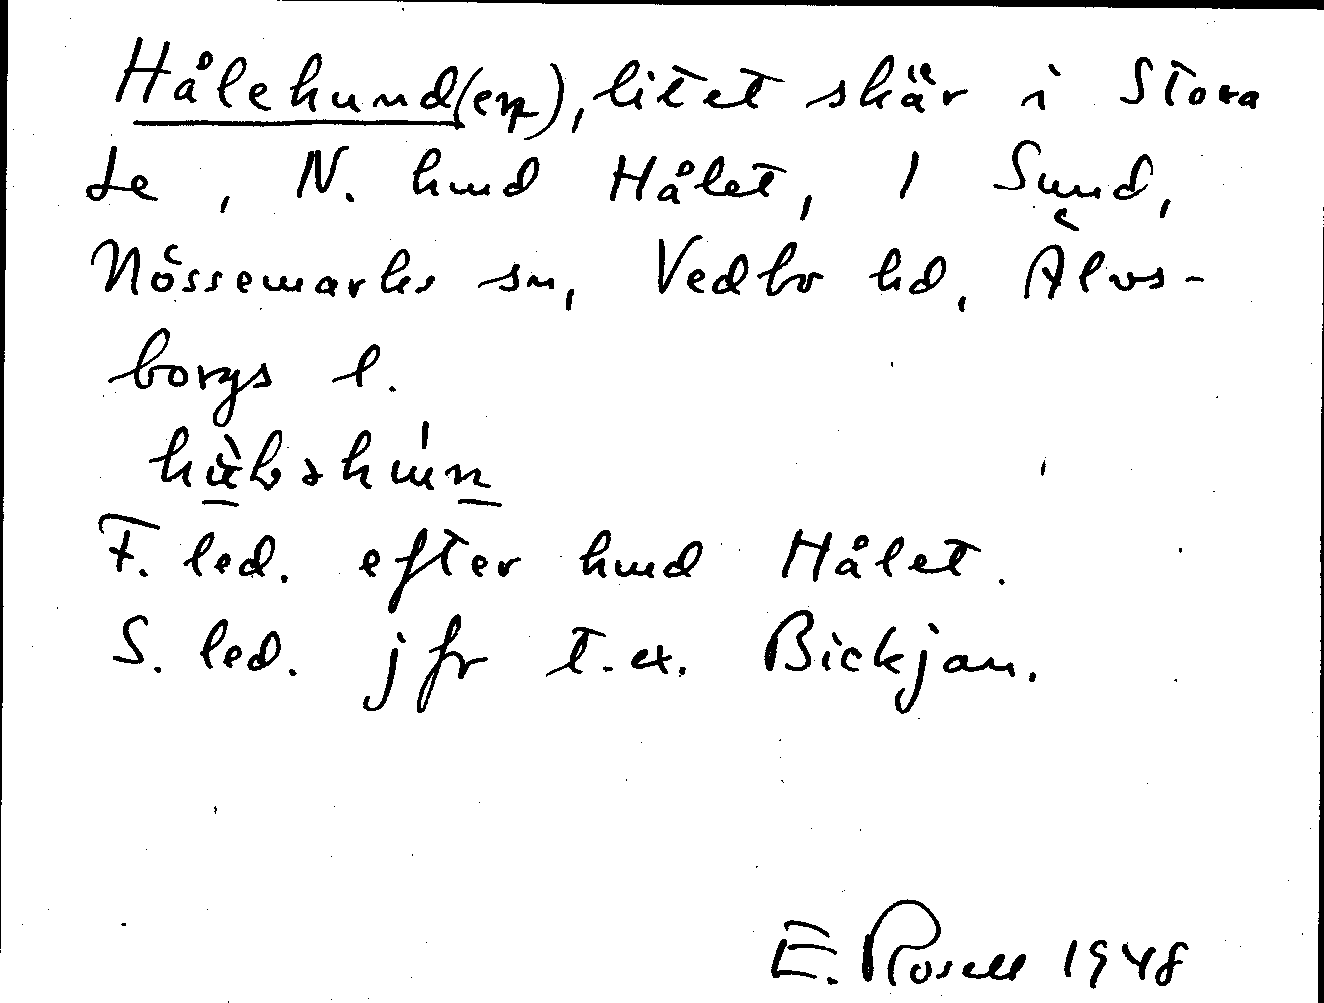 Hålehund(en), litet skär i Stora
Le, N. hmd Hålet, 1 Sund,
Nössemarks sn, Vedbo hd, Älvs-
borgs l.
F. led. efter hmd Hålet.
S. led. jfr t.ex. Bickjan.
E. Rosell 1948